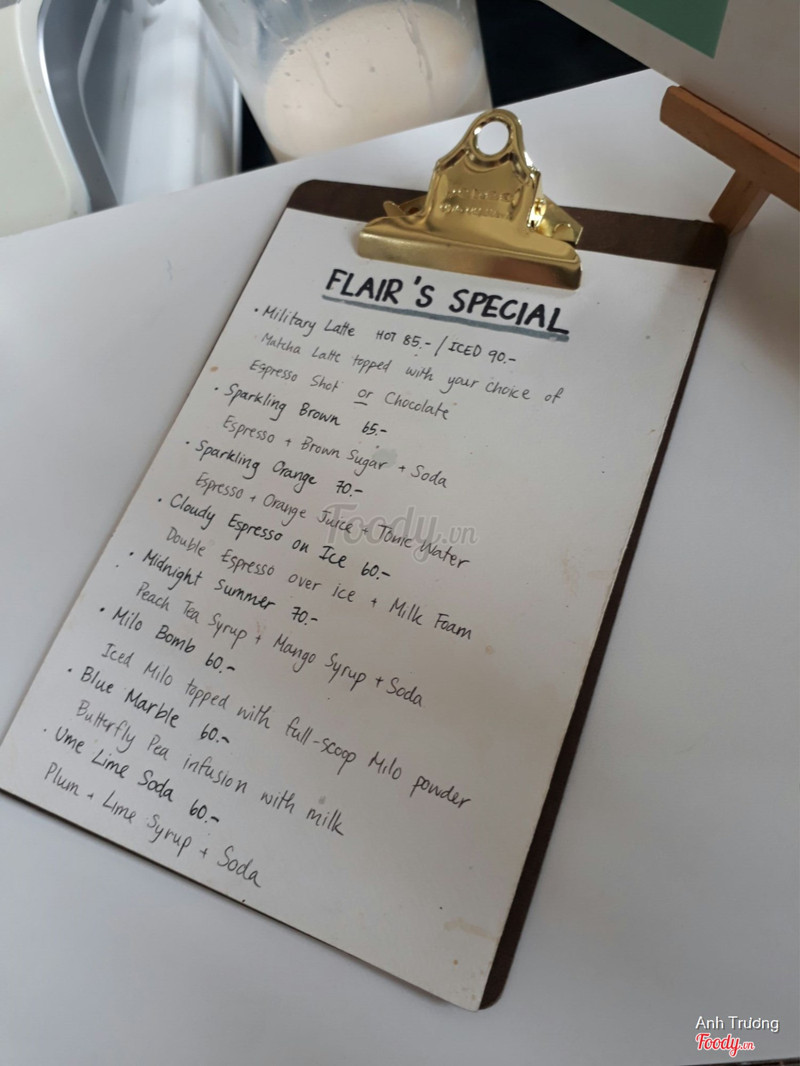 FLAIR'S SPECIAL
• Military Latte HOT 85.- / ICED 90.-
Matcha Latte topped with your choice of
Espresso Shot or Chocolate
• Sparkling Brown 65.-
Espresso + Brown Sugar + Soda
• Sparkling Orange 70.-
Espresso + Orange Juice + Tonic Water
• Cloudy Espresso on Ice 60.-
Double Espresso over ice + Milk Foam
• Midnight Summer 70.-
Peach Tea Syrup + Mango Syrup + Soda
• Milo Bomb 60.-
Iced Milo topped with full-scoop Milo powder
• Blue Marble 60.-
Butterfly Pea infusion with milk
• Ume Lime Soda 60.-
Plum + Lime Syrup + Soda
Foody.vn
Anh Trương
Foody.vn